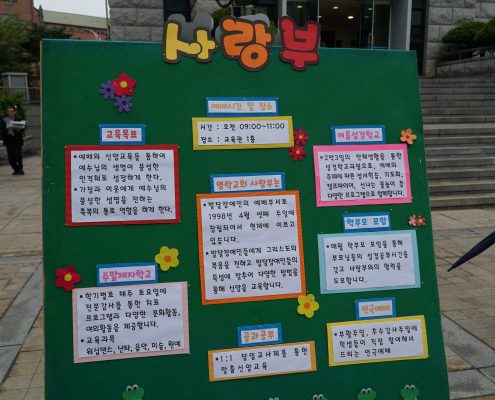 사랑부
예배시간 및 장소
시간 : 오전 09:00~11:00
장소 : 교육관 1층
교육목표
• 예배와 신앙교육을 통하여
예수님의 생명이 풍성한
인격체로 성장하게 한다.
• 가정과 이웃에게 예수님의
풍성한 생명을 전하는
축복의 통로 역할을 하게 한다.
영락교회 사랑부는
• 발달장애인의 예배부서로
1998년 4월 첫째 주일에
창립되어서 현재에 이르고
있습니다.
• 발달장애인들에게 그리스도의
복음을 전하고 발달장애인들의
특성에 맞추어 다양한 방법을
통해 신앙을 교육합니다.
여름성경학교
• 2박3일의 단체생활을 통한
성경학교과정으로, 예배와
주제에 따른 성서학습, 기도회,
캠프파이어, 신나는 물놀이 등
다양한 프로그램으로 함께합니다.
학부모 모임
• 매월 학부모 모임을 통해
부모님들의 성경공부시간을
갖고 사랑부와의 협력을
도모합니다.
주말제자학교
• 학기별로 매주 토요일에
전문강사를 통한 치료
프로그램과 다양한 문화활동,
야외활동을 제공합니다.
• 교육과목
워십댄스, 난타, 음악, 미술, 원예
공과공부
• 1:1 담임교사제를 통한
맞춤신앙교육
연극예배
• 부활주일, 추수감사주일에
학생들이 직접 참여해서
드리는 연극예배